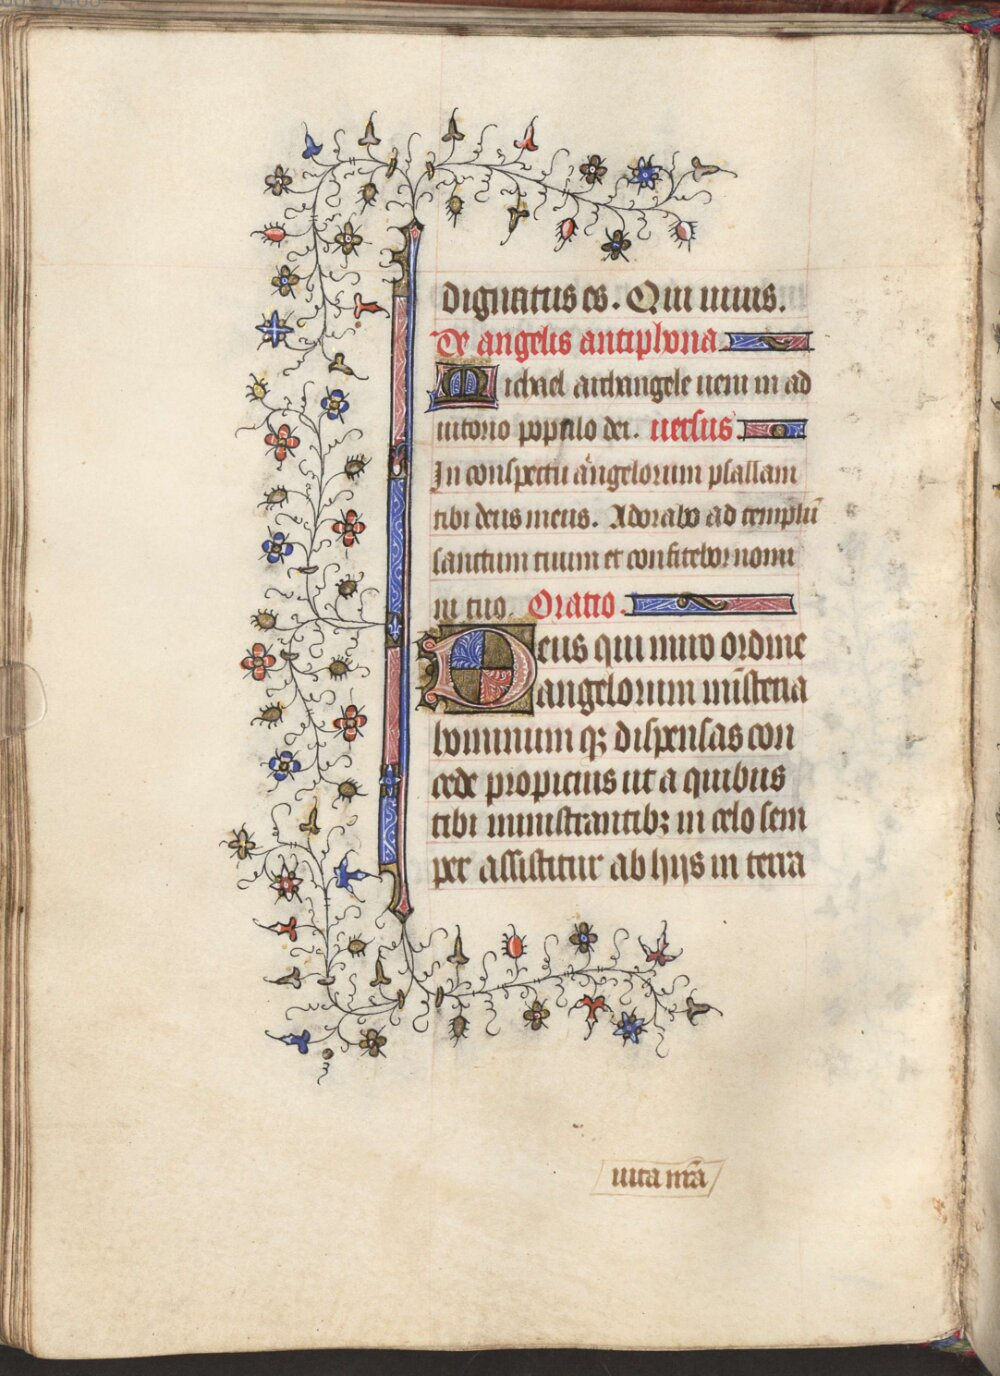 dignatus es. Qui uiuis.
De angelis antiphona
Michael archangele ueni in ad
iutorio populo dei. uersus
In conspectu angelorum psallam
tibi deus meus. Adorabo ad templū
sanctum tuum et confitebor nomi
ni tuo. Oratio.
Deus qui miro ordine
angelorum mīsteria
hominum qꝫ dispensas con
cede propicius ut a quibus
tibi ministrantibꝫ in celo sem
per assistitur ab hijs in terra
uita nr̄a